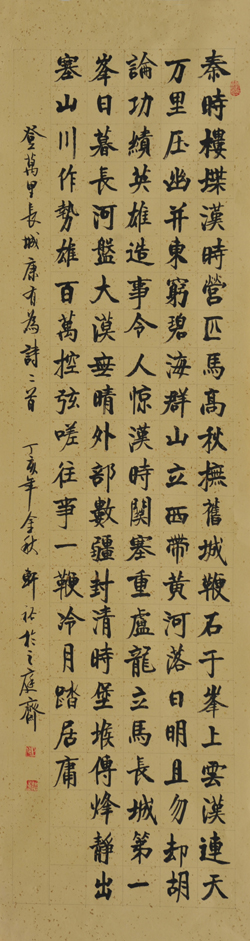 秦時樓堞漢時營匹馬高秋撫舊城鞭石于峯上雲漢連天
万里压幽并東窮碧海群山立西帶黄河落日明且勿却胡
論功績英雄造事令人惊漢時関塞重盧龍立馬長城第一
峯日暮長河盤大漠無晴外部數疆封清時堡堠傳烽静出
塞山川作勢雄百萬控弦嗟往事一鞭冷月踏居庸
登萬里長城康有為詩二首 丁亥年金秋 軒於之庭齋